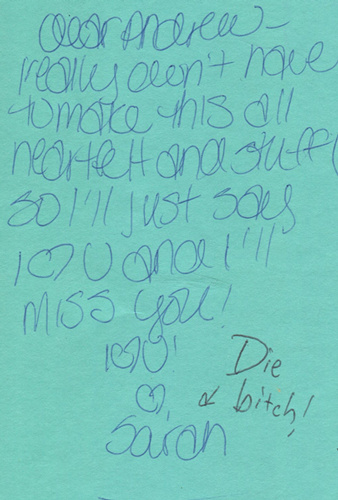 Dear Andrew-
I really don't have
to make this all
heartfelt and stuff
so I'll just say
I ♡ U and I'll
miss you!
I ♡ U!
♡,
Sarah
Die
bitch!